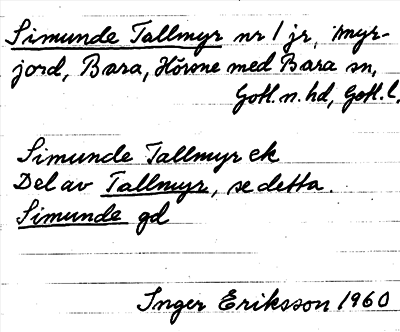 Simunde Tallmyr nr 1 jr, myr-
jord, Bara, Hörsne med Bara sn,
Gotl. n. hd, Gotl. l.
Simunde Tallmyr ek
Del av Tallmyr, se detta.
Simunde gd
Inger Eriksson 1960